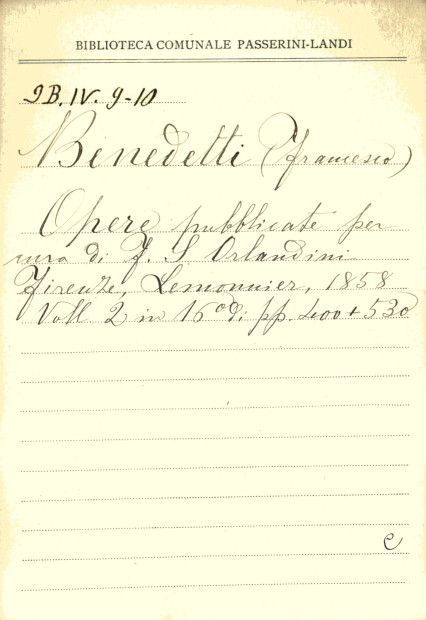 BIBLIOTECA COMUNALE PASSERINI-LANDI
9B.IV.9-10
Benedetti (Francesco)
Opere pubblicate per
cura di F. S Orlandini
Firenze, Lemonnier, 1858
Voll 2 in 16° di pp. 400 + 530
e